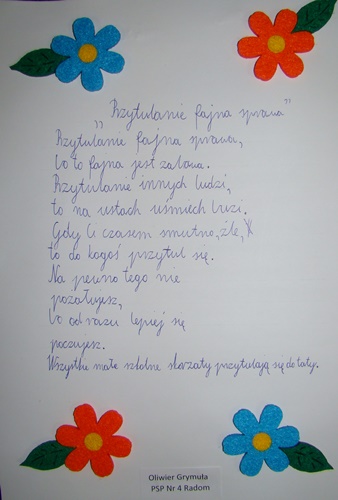 „Przytulanie fajna sprawa”
Przytulanie fajna sprawa,
bo to fajna jest zabawa.
Przytulanie innych ludzi,
to na ustach uśmiech budzi.
Gdy Ci czasem smutno, źle,
to do kogoś przytul się.
Na pewno tego nie
pożałujesz,
bo od razu lepiej się
poczujesz.
Wszystkie małe szkolne skrzaty przytulają się do taty.
Oliwier Grymuła
PSP Nr 4 Radom